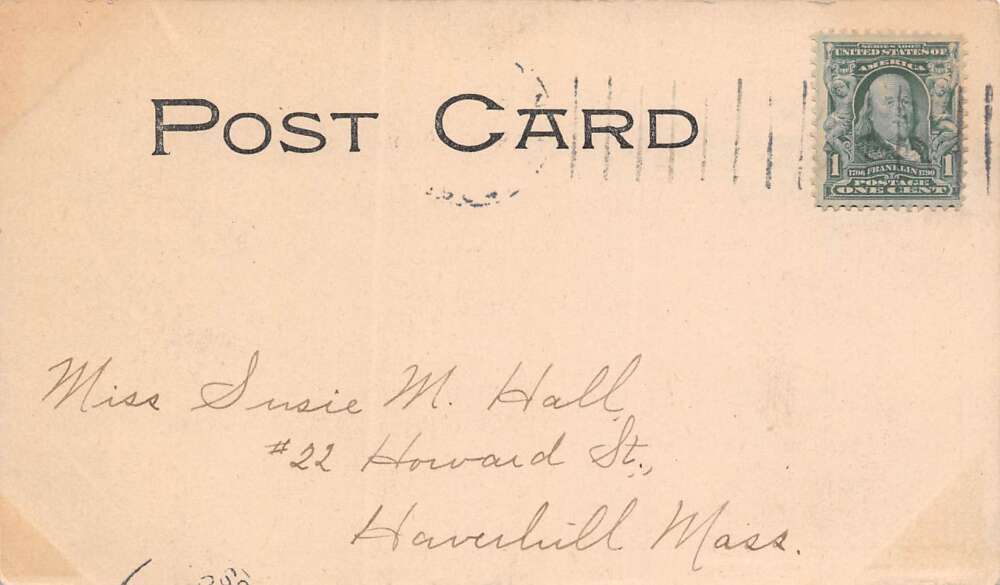 POST CARD
SERIES 1902
UNITED STATES OF
AMERICA
1 1706 FRANKLIN 1790 1
POSTAGE
ONE CENT
Miss Susie M. Hall,
#22 Howard St.,
Haverhill Mass.